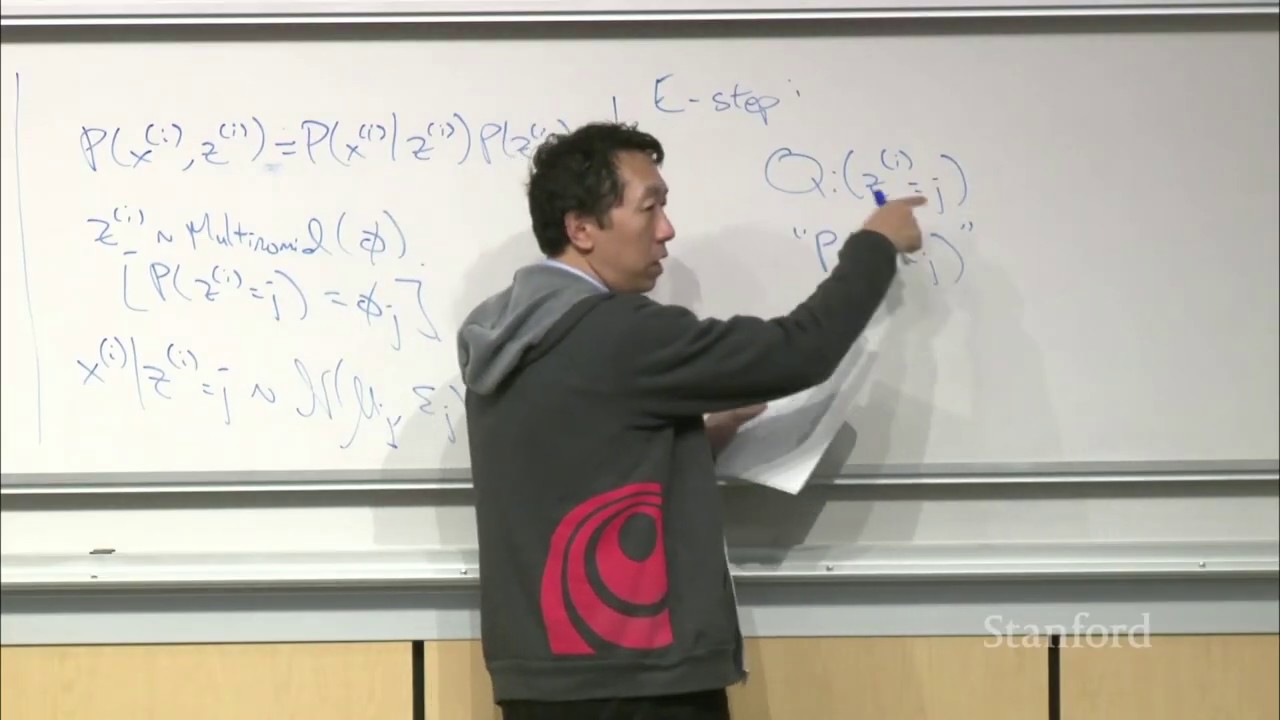 P(x^(i), z^(i)) = P(x^(i) | z^(i)) P(z^(i)
z^(i) ~ Multinomial(φ).
[P(z^(i) = j) = φ_j]
x^(i) | z^(i) = j ~ N(μ_j, Σ_j)
E-step:
Q_i(z^(i) = j)
"P j)"
Stanford